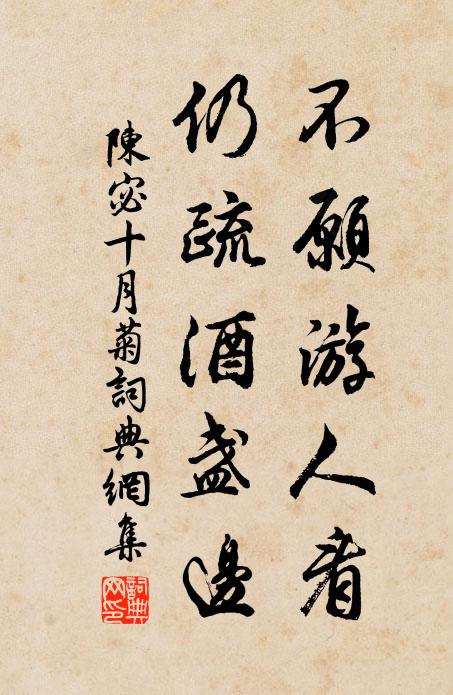 不願游人看
仍疏酒盏邊
陳宓十月菊詞典網集
詞典網印